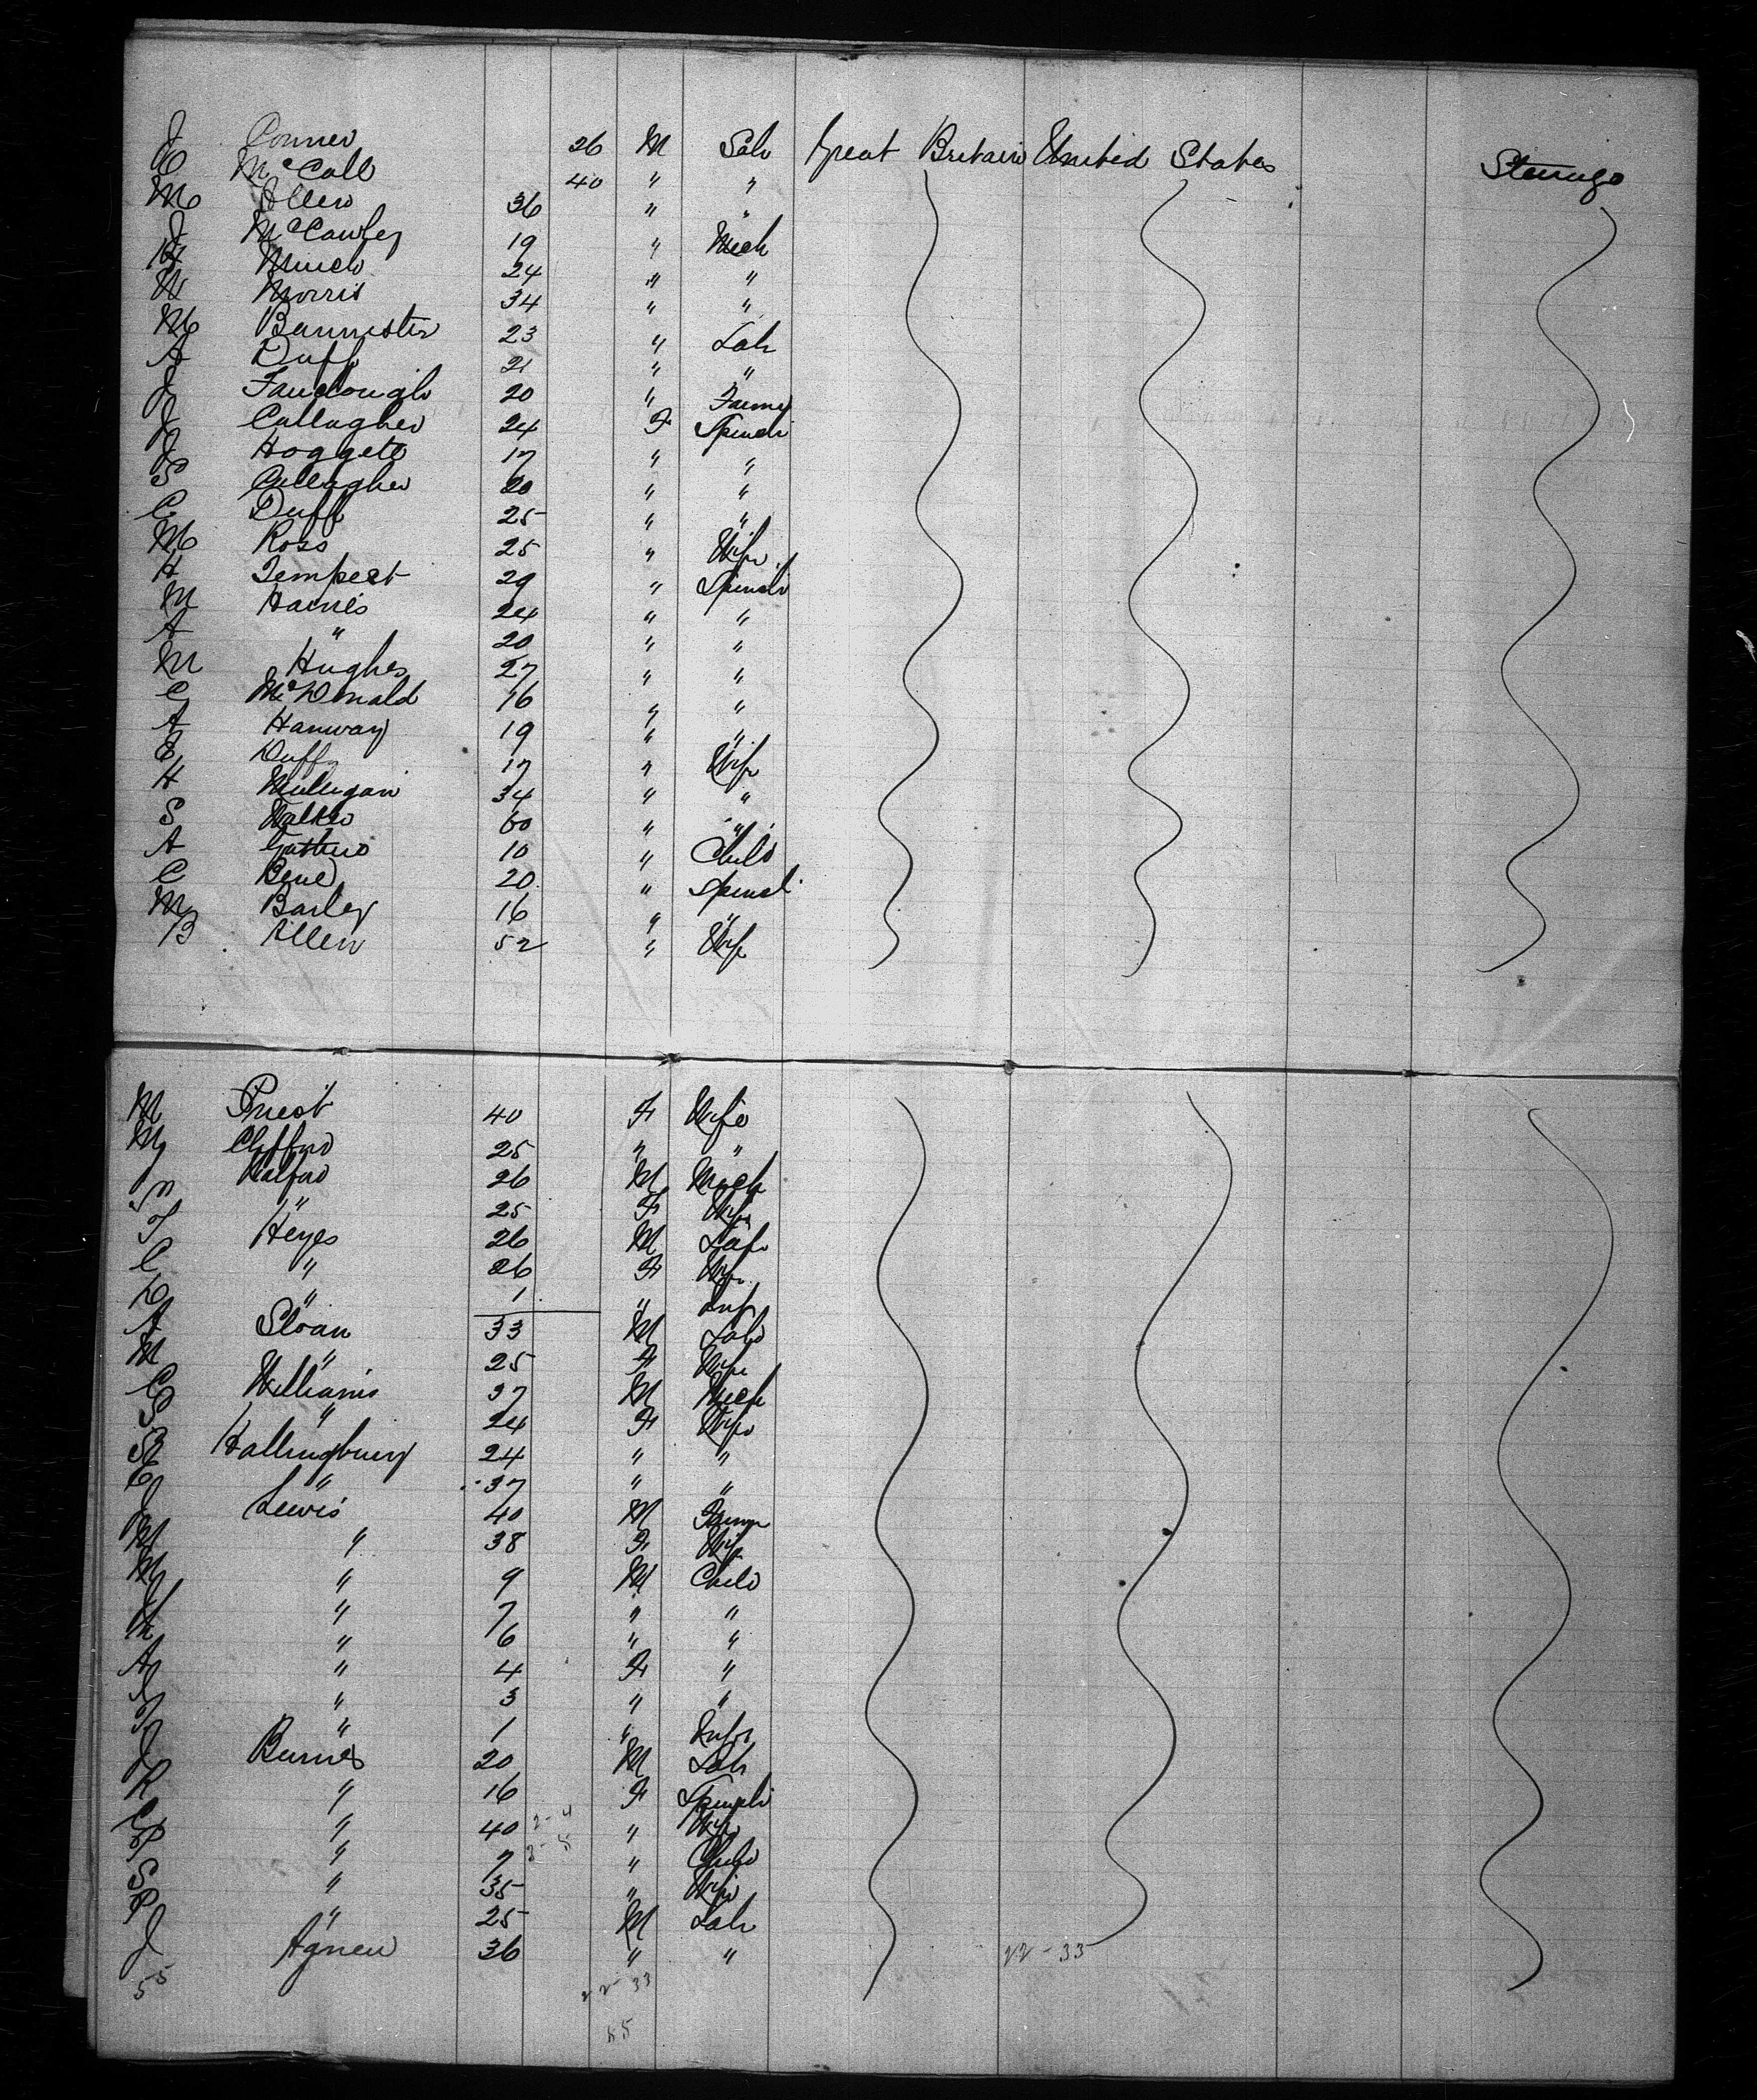 J Conner 26 M Lab Great Britain United States Steerage
C McCall 40 " "
M Allen 36 " "
J McCawley 19 " Mech
H Minch 24 " "
W Morris 34 " "
M Bannister 23 " Lab
A Duff 21 " "
J Fairclough 20 " Farmer
J Callagher 24 F Spinstr
J Hoggett 17 " "
S Callagher 20 " "
C Duff 25 " "
M Ross 25 " Wife
H Tempest 29 " Spinstr
M Haines 24 " "
A " 20 " "
M Hughes 27 " "
C McDonald 16 " "
A Hanway 19 " "
E Duffy 17 " Wife
H Mulligan 34 " "
S Walker 60 " "
A 10 " Child
C 20 " Spinst
M Barley 16 " "
B Allen 52 " Wife
M Priest 40 F Wife
M Clifford 25 " "
Halford 26 M Mech
M " 25 F Wife
T Heyes 26 M Lab
C " 26 F Wife
" 1 " Inft
A Sloan 33 M Lab
M " 25 F Wife
C Williams 37 M Mech
S " 24 F Wife
R Hallingbury 24 " "
C " 37 " "
J Lewis 40 M Farmr
M " 38 F Wife
M " 9 M Child
J " 7 " "
" 6 " "
A " 4 F "
" 3 " "
" 1 " Inft
J Burnes 20 M Lab
R " 16 F Spinstr
C " 40 " Wife
P " 7 " Child
S " 35 " Wife
P " 25 M Lab
J Agnew 36 " " 22-33
55 22-33
55